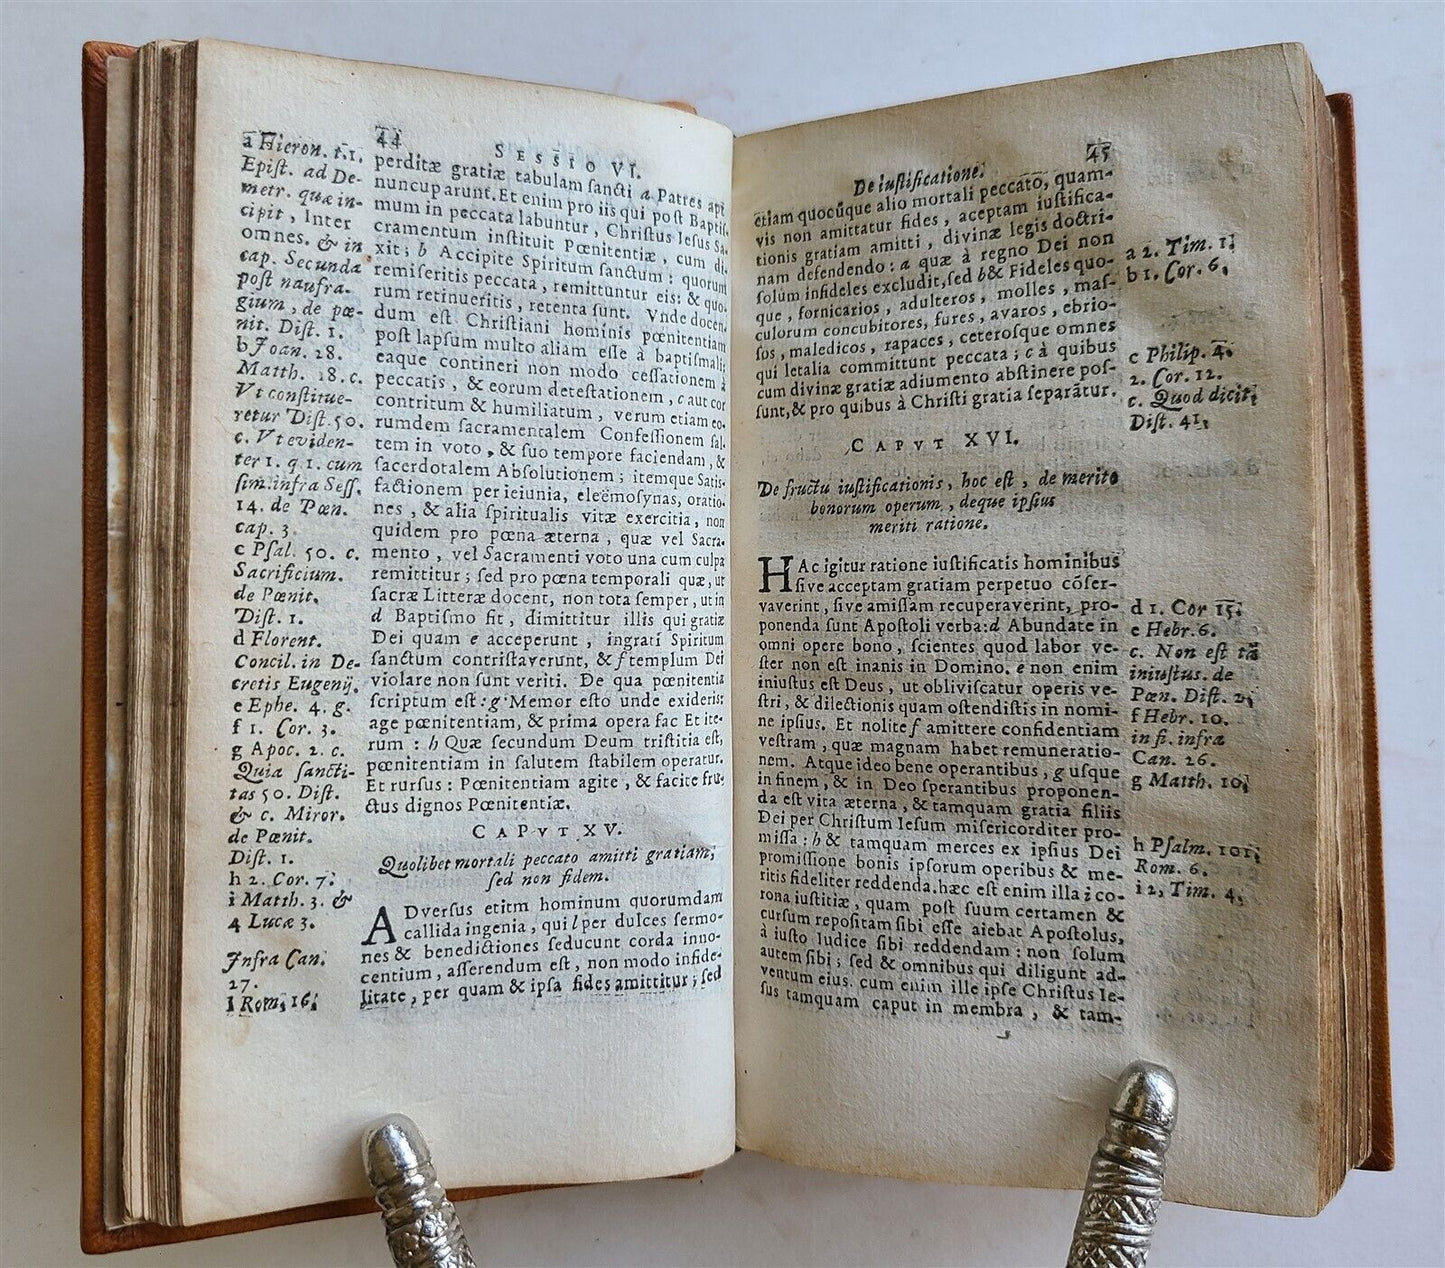 44
SESSIO VI.
perditæ gratiæ tabulam ſancti a Patres apt
nuncuparunt. Et enim pro iis qui poſt Baptiſ-
mum in peccata labuntur, Chriſtus Ieſus Sa-
cramentum inſtituit Pœnitentiæ, cum di-
xit; b Accipite Spiritum ſanctum: quorum
remiſeritis peccata, remittuntur eis: & quo-
rum retinueritis, retenta ſunt. Vnde docen-
dum eſt Chriſtiani hominis pœnitentiam
poſt lapſum multo aliam eſſe à baptiſmali;
eaque contineri non modo ceſſationem à
peccatis, & eorum deteſtationem, c aut cor
contritum & humiliatum, verum etiam eo-
rumdem ſacramentalem Confeſſionem ſal-
tem in voto, & ſuo tempore faciendam, &
ſacerdotalem Abſolutionem; itemque Satiſ-
factionem per ieiunia, eleëmoſynas, oratio-
nes, & alia ſpiritualis vitæ exercitia, non
quidem pro pœna æterna, quæ vel Sacra-
mento, vel Sacramenti voto una cum culpa
remittitur; ſed pro pœna temporali quæ, ut
ſacræ Litteræ docent, non tota ſemper, ut in
d Baptiſmo fit, dimittitur illis qui gratiæ
Dei quam e acceperunt, ingrati Spiritum
ſanctum contriſtaverunt, & f templum Dei
violare non ſunt veriti. De qua pœnitentia
ſcriptum eſt: g Memor eſto unde exideris:
age pœnitentiam, & prima opera fac Et ite-
rum: h Quæ ſecundum Deum triſtitia eſt,
pœnitentiam in ſalutem ſtabilem operatur.
Et rurſus: Pœnitentiam agite, & facite fru-
ctus dignos Pœnitentiæ.
CAPVT XV.
Quolibet mortali peccato amitti gratiam,
ſed non fidem.
ADverſus etitm hominum quorumdam
callida ingenia, qui l per dulces ſermo-
nes & benedictiones ſeducunt corda inno-
centium, aſſerendum eſt, non modo infide-
litate, per quam & ipſa fides amittitur; ſed
a Hieron. t. 1.
Epiſt. ad De-
metr. quæ in-
cipit, Inter
omnes. & in
cap. Secunda
poſt naufra-
gium, de pœ-
nit. Diſt. 1.
b Joan. 28.
Matth. 18. c.
Vt conſtitue-
retur Diſt. 50.
c. Vt eviden-
ter 1. q 1. cum
ſim. infra Seſſ.
14. de Pœn.
cap. 3.
c Pſal. 50. c.
Sacrificium.
de Pœnit.
Diſt. 1.
d Florent.
Concil. in De-
cretis Eugenij.
e Ephe. 4. g.
f 1. Cor. 3.
g Apoc. 2. c.
Quia ſancti-
tas 50. Diſt.
& c. Miror.
de Pœnit.
Diſt. 1.
h 2. Cor. 7.
i Matth. 3. &
4 Lucæ 3.
Infra Can.
27.
l Rom. 16.
De iuſtificatione.
45
etiam quocũque alio mortali peccato, quam-
vis non amittatur fides, aceptam iuſtifica-
tionis gratiam amitti, divinæ legis doctri-
nam defendendo: a quæ à regno Dei non
ſolum infideles excludit, ſed b & Fideles quo-
que, fornicarios, adulteros, molles, maſ-
culorum concubitores, fures, avaros, ebrio-
ſos, maledicos, rapaces, ceteroſque omnes
qui letalia committunt peccata; c à quibus
cum divinæ gratiæ adiumento abſtinere poſ-
ſunt, & pro quibus à Chriſti gratia ſeparãtur.
CAPVT XVI.
De fructu iuſtificationis, hoc eſt, de merito
bonorum operum, deque ipſius
meriti ratione.
HAc igitur ratione iuſtificatis hominibus
ſive acceptam gratiam perpetuo cõſer-
vaverint, ſive amiſſam recuperaverint, pro-
ponenda ſunt Apoſtoli verba: d Abundate in
omni opere bono, ſcientes quod labor ve-
ſter non eſt inanis in Domino. e non enim
iniuſtus eſt Deus, ut obliviſcatur operis ve-
ſtri, & dilectionis quam oſtendiſtis in nomi-
ne ipſius. Et nolite f amittere confidentiam
veſtram, quæ magnam habet remuneratio-
nem. Atque ideo bene operantibus, g uſque
in finem, & in Deo ſperantibus proponen-
da eſt vita æterna, & tamquam gratia filiis
Dei per Chriſtum Ieſum miſericorditer pro-
miſſa: h & tamquam merces ex ipſius Dei
promiſſione bonis ipſorum operibus & me-
ritis fideliter reddenda. hæc eſt enim illa i co-
rona iuſtitiæ, quam poſt ſuum certamen &
curſum repoſitam ſibi eſſe aiebat Apoſtolus,
à iuſto Iudice ſibi reddendam: non ſolum
autem ſibi; ſed & omnibus qui diligunt ad-
ventum eius. cum enim ille ipſe Chriſtus Ie-
ſus tamquam caput in membra, & tam-
a 2. Tim. 1.
b 1. Cor. 6.
c Philip. 4.
2. Cor. 12.
c. Quod dicit,
Diſt. 41.
d 1. Cor 15.
e Hebr. 6.
c. Non eſt tã
iniuſtus. de
Pœn. Diſt. 2.
f Hebr. 10.
in fi. infra
Can. 26.
g Matth. 10.
h Pſalm. 101.
Rom. 6.
i 2. Tim. 4.